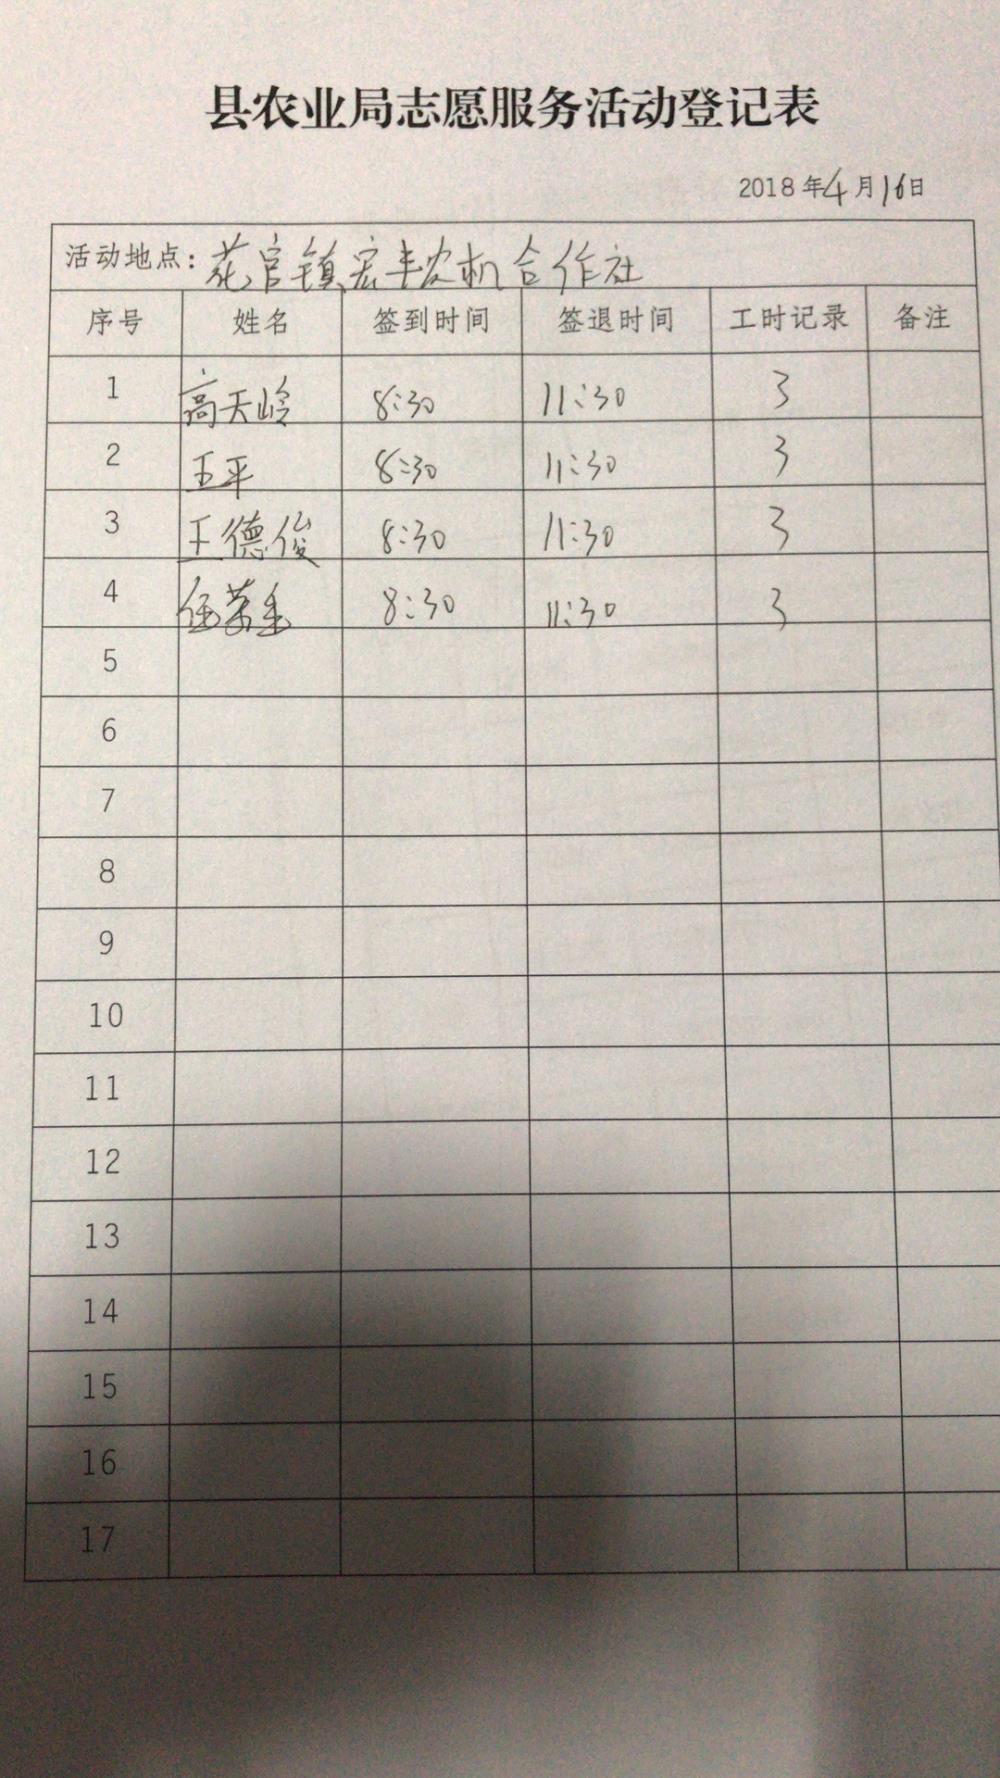 县农业局志愿服务活动登记表
2018年4月16日
活动地点：花官镇宏丰农机合作社
序号 姓名 签到时间 签退时间 工时记录 备注
1 高天岭 8:30 11:30 3
2 王平 8:30 11:30 3
3 王德俊 8:30 11:30 3
4 8:30 11:30 3
5
6
7
8
9
10
11
12
13
14
15
16
17